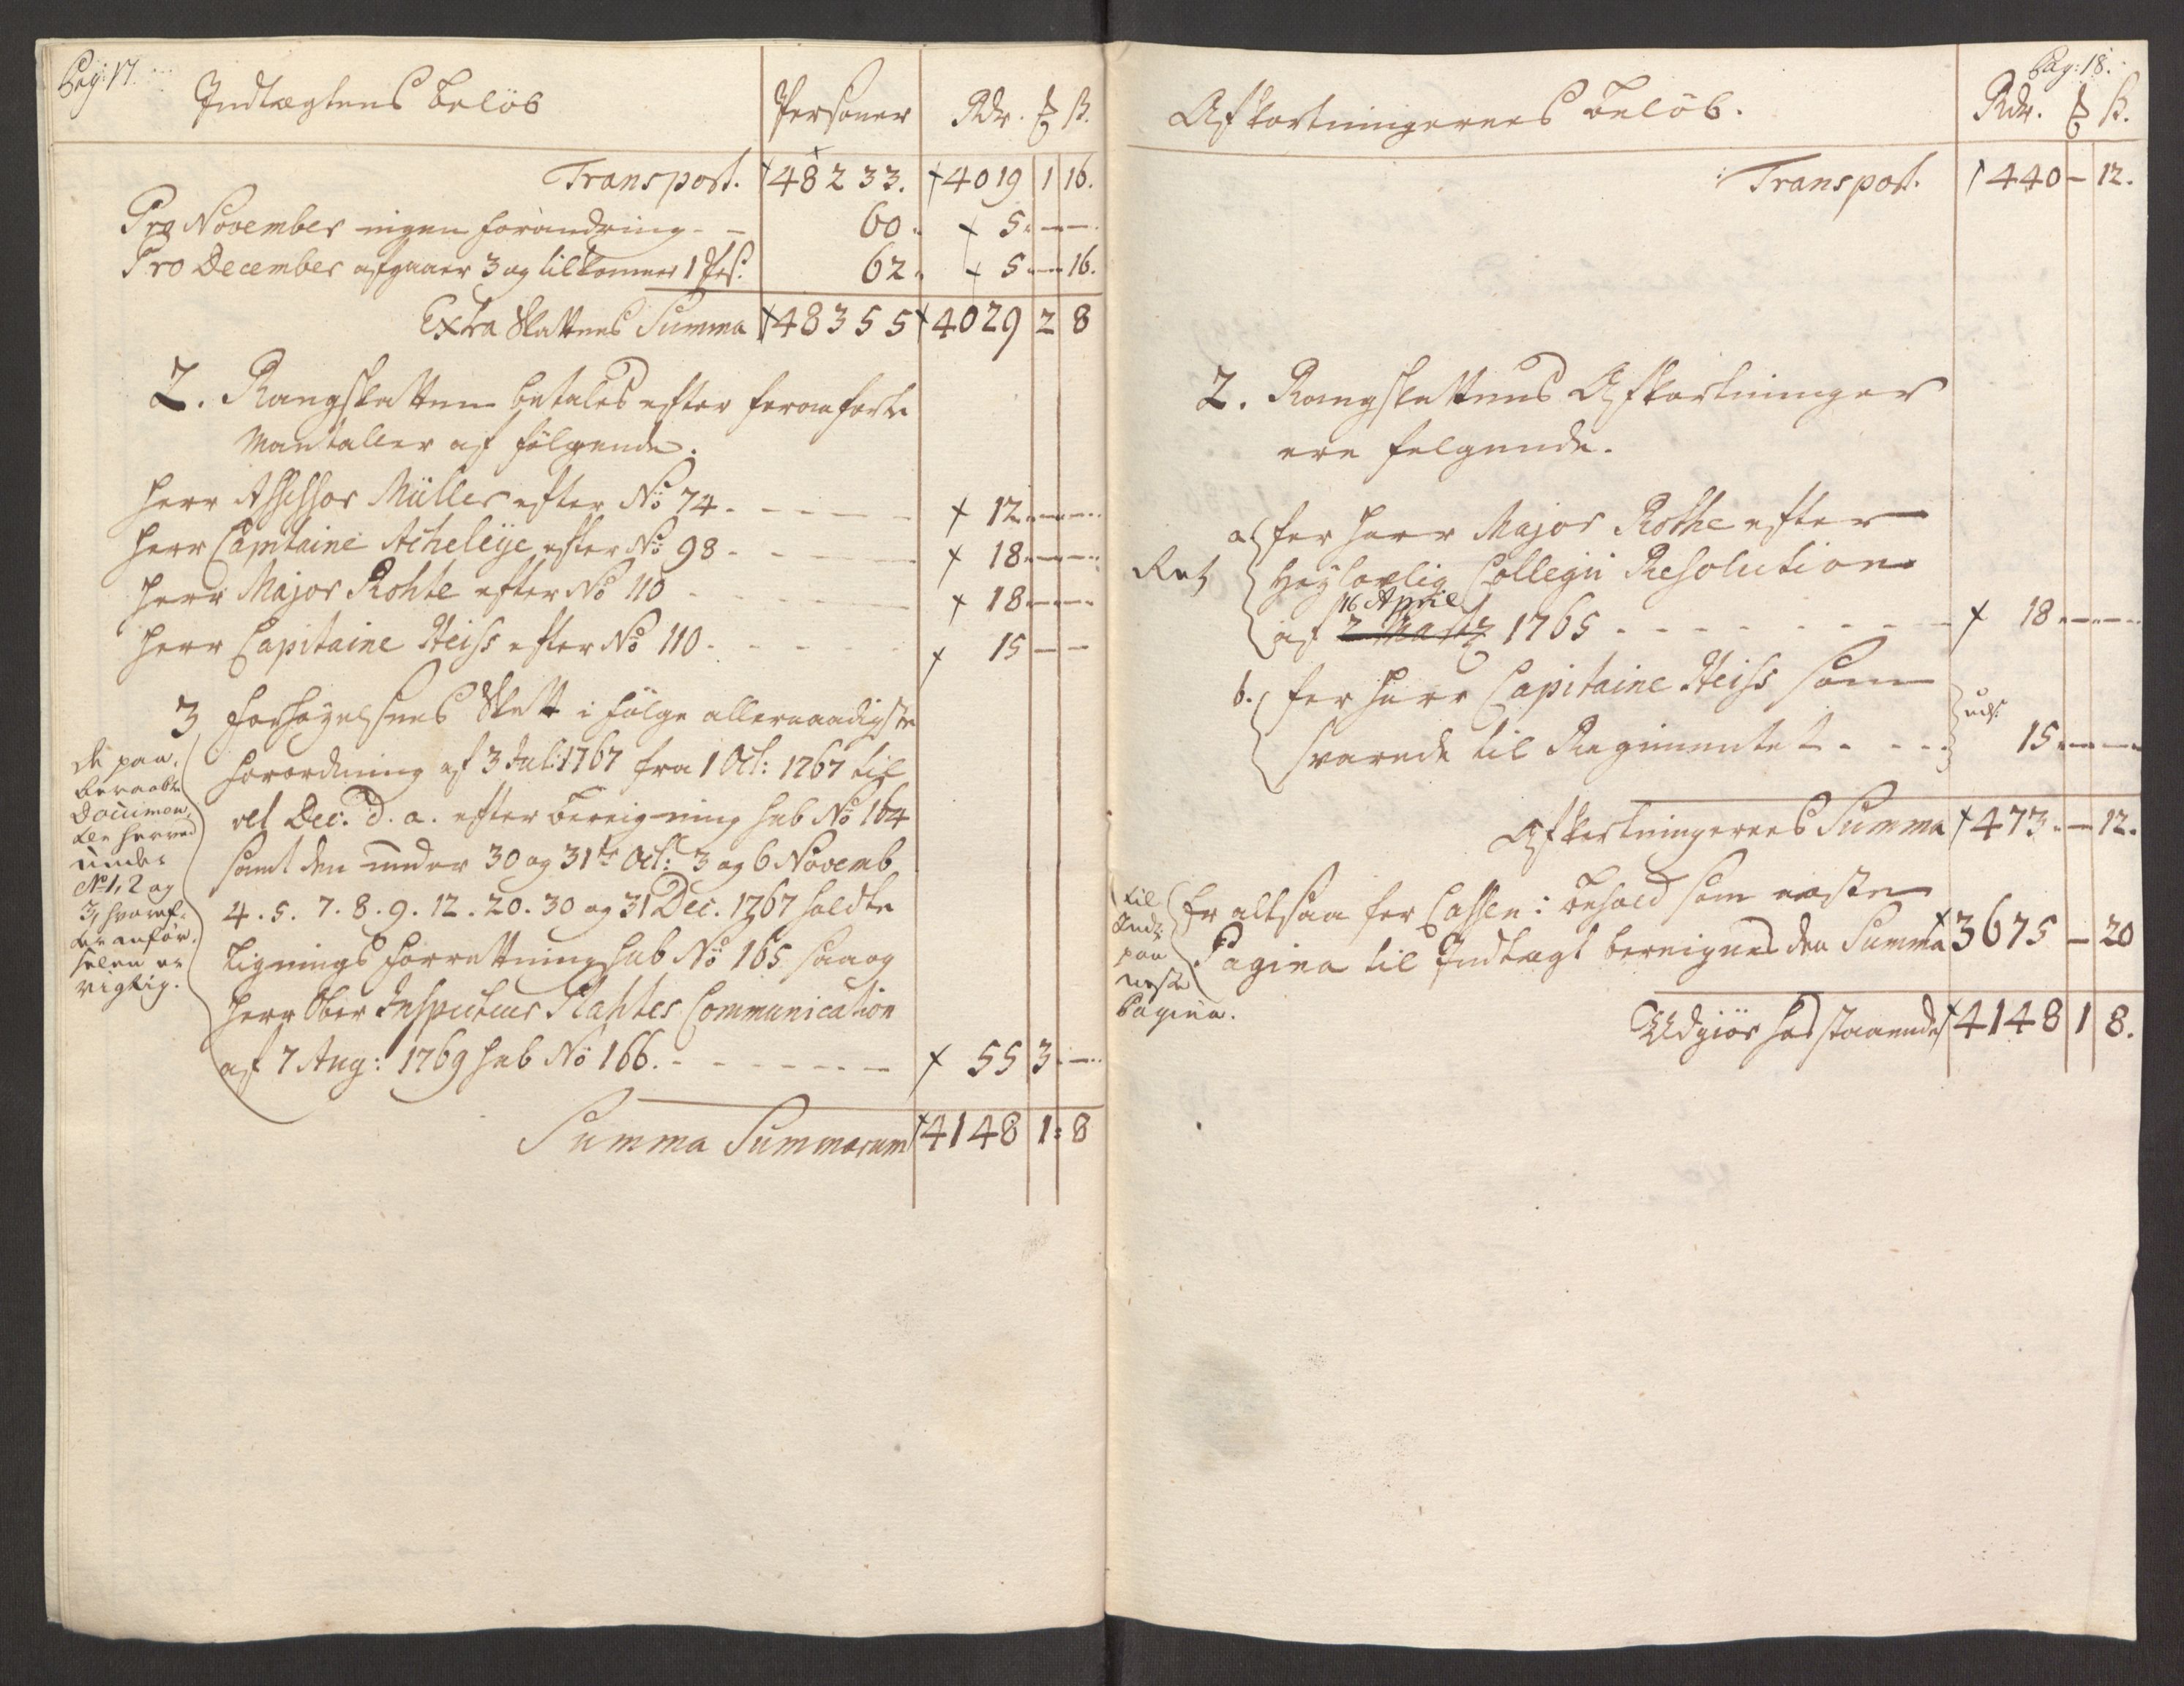 Pag: 17.
Indtægtens Beløb
Personer
Rdr. ß.
Transport. 48233. 4019 1 16.
Pro November ingen forandring - - 60. 5. — —.
Pro December afgaaer 3 og tilkommer 1 Pers: 62. 5. — 16.
Extra Skattens Summa 48355 4029 2 8
2. Rangskatten betales efter foranførte
Mantaller af følgende.
Herr Assessor Müller efter No 74. - - - - - 12. — —
Herr Captaine Acheleÿe efter No 98 - - - - 18. — —
Herr Major Rohte efter No 110 - - - - - 18 — —
Herr Capitaine Heiss efter No 110. - - - - - 15 — —
3, Forhøyelsens Skatt i følge allernaadigste
Forordning af 3 Jul: 1767 fra 1 Oct: 1767 til
ult Dec. d. a. efter Bereigning sub No 164
samt den under 30 og 31te Oct: 3 og 6 Novemb
4. 5. 7. 8. 9. 12. 20. 30 og 31 Dec. 1767 holdte
Lignings Forrettning sub No 165 saa og
Herr Ober Inspecteur Communication
af 7 Aug: 1769 sub No 166. - - - - - - 55 3. —
de paa-
beraabte
Documen-
ter herved
under
No 1, 2 og
3, hvoref-
ter anfør-
selen er
rigtig.
Summa Summarum 4148 1 = 8
Pag: 18.
Afkortningernes Beløb.
Rdr. ß.
Transport. 440 — 12.
2. Rangskattens Afkortninger
ere følgende.
a. for Herr Major Rothe efter
Høylovlig Collegii Resolution
16 April
af 2 Martz 1765 - - - - - - - 18 — —
b. for Herr Capitaine Heiss som
svarede til Regimentet - - - 15 — —
Afkortningernes Summa 473. — 12.
til
Indt:
paa
neste
Pagina.
Er altsaa for Cassen: Behold som neste
Pagina til Indtægt bereignes den Summa 3675 — 20
Udgiør hosstaaende 4148 1 8.